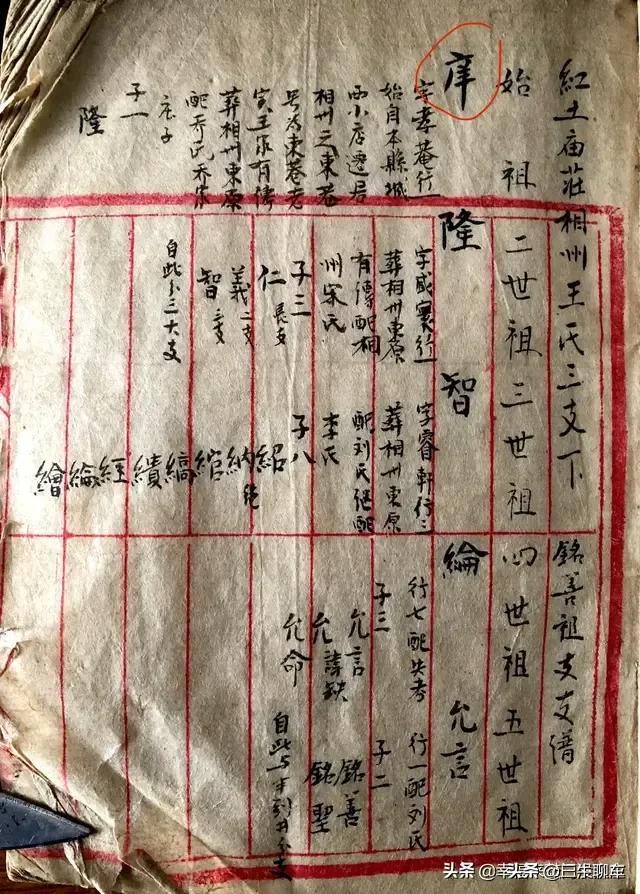 紅土庙莊相州王氏三支下 銘善祖支支谱
始祖 二世祖 三世祖 四世祖 五世祖
庠
字孝菴行一
始自本縣城
西小店遷居
相州之東巷
号为東巷老
葬相州東原
配乔氏乔家
庄子
子一
隆
隆
字咸寰行一
葬相州東原
有傳配相
州宋氏
子三
仁 長支
義 二支
智 三支
自此分三大支
智
字睿軒行三
葬相州東原
配刘氏继配
李氏
子八
紹
納
綰
縞
績
經
綸
繪
綸
行七配失考
子三
允言
允讜缺
允命
允言
行一配刘氏
子二
銘善
銘聖
头条 @幸头条 @王乐聊车